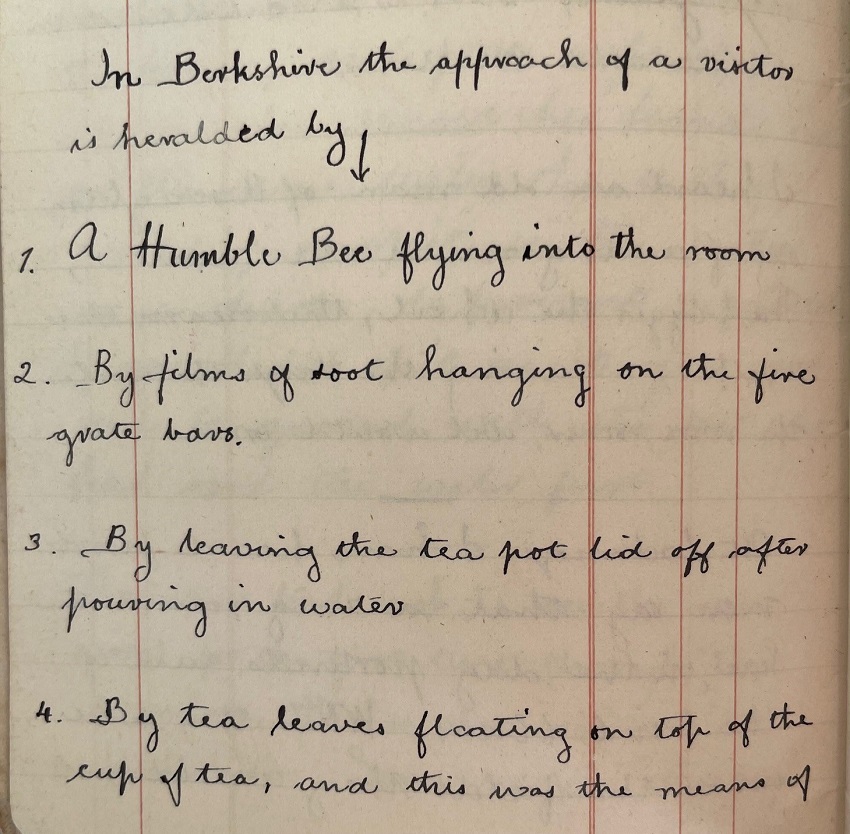 In Berkshire the approach of a visitor
is heralded by ↓
1. A Humble Bee flying into the room
2. By films of soot hanging on the fire
grate bars.
3. By leaving the tea pot lid off after
pouring in water
4. By tea leaves floating on top of the
cup of tea, and this was the means of